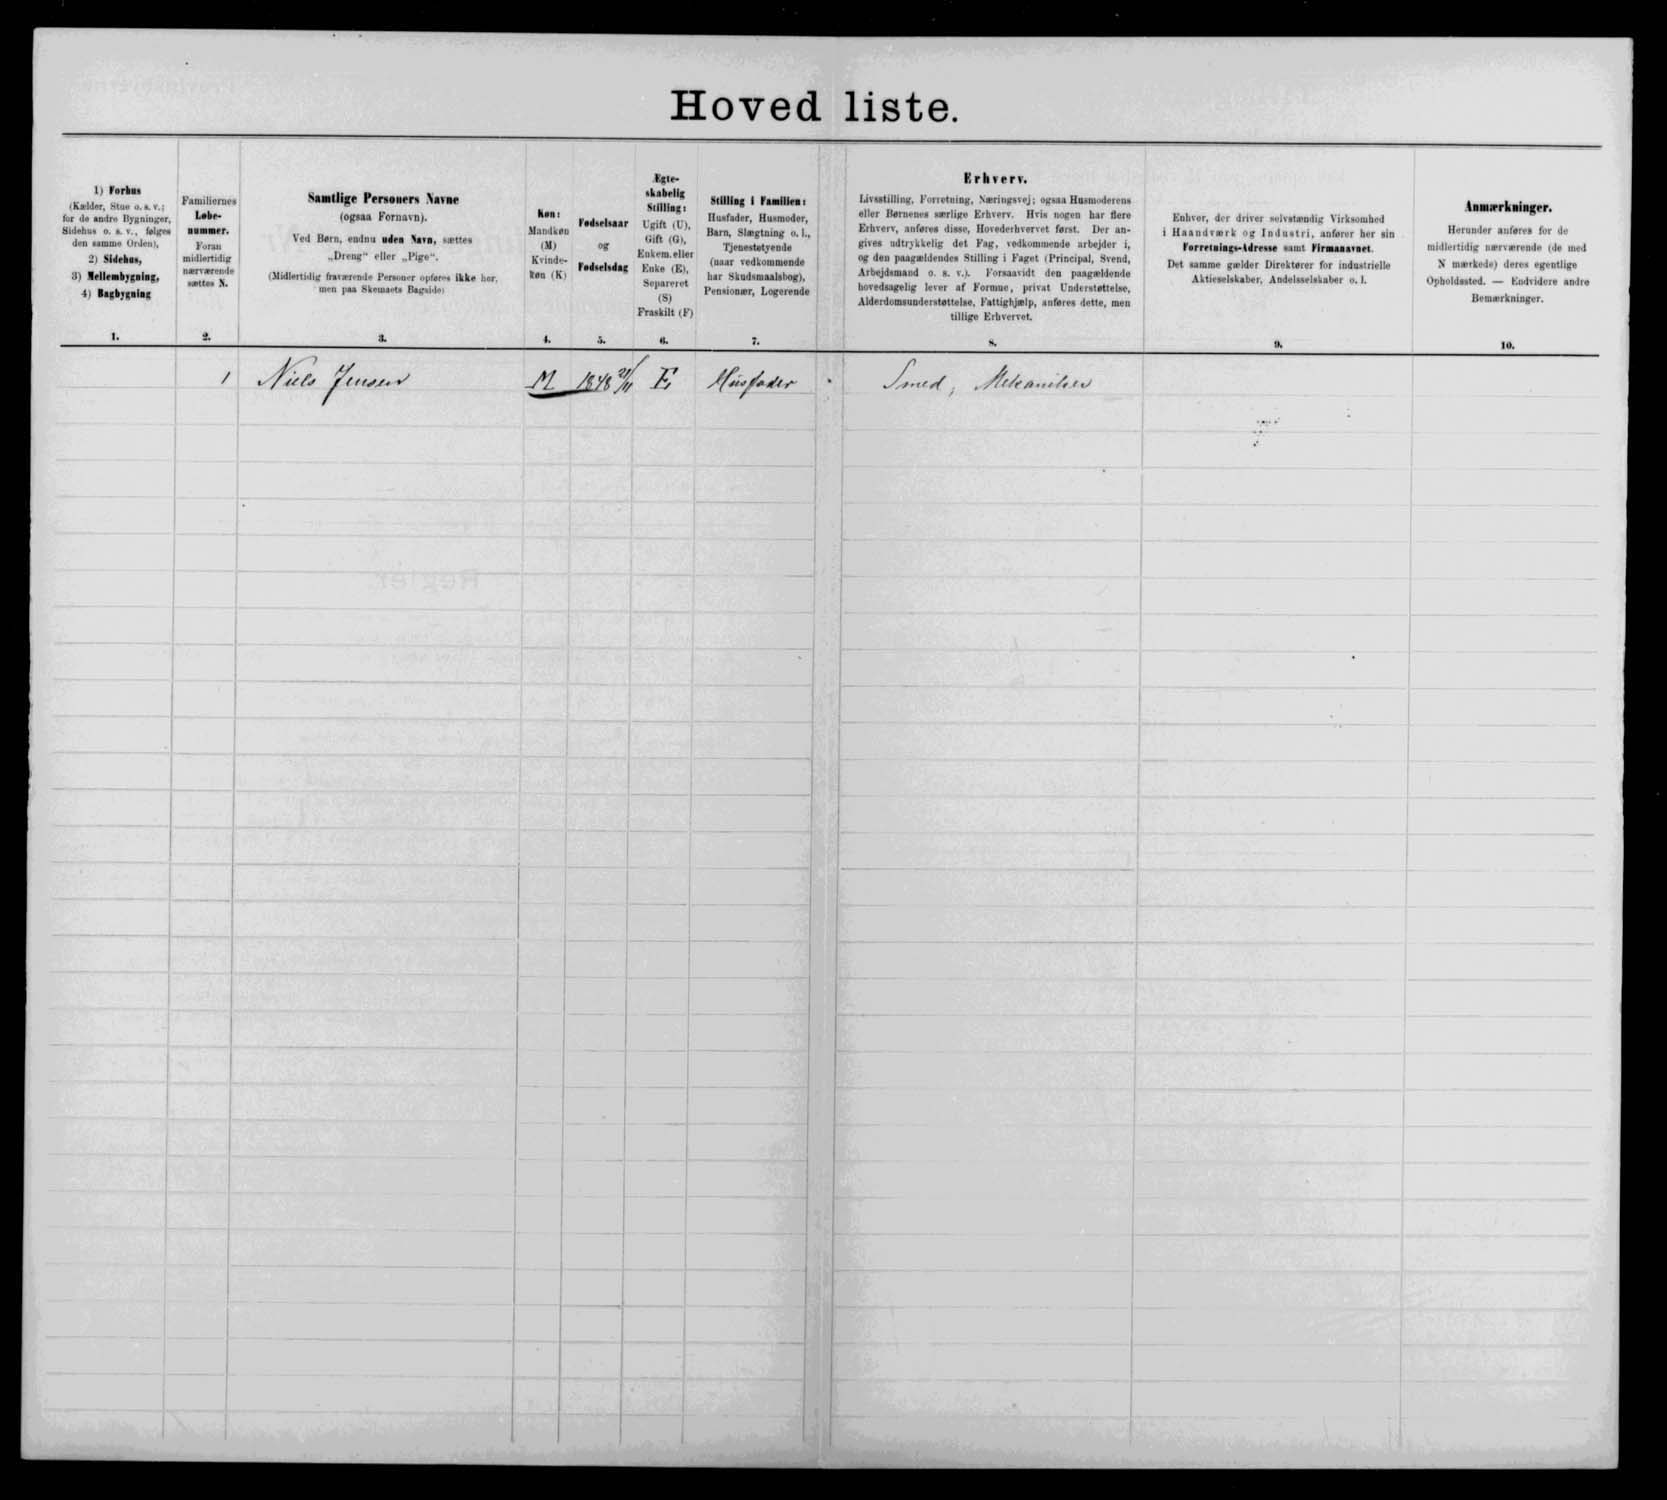 Hoved liste.
1) Forhus
(Kælder, Stue o. s. v.;
for de andre Bygninger,
Sidehus o. s. v., følges
den samme Orden),
2) Sidehus,
3) Mellembygning,
4) Bagbygning
1.
Familiernes
Løbe-
nummer.
Foran
midlertidig
nærværende
sættes N.
2.
Samtlige Personers Navne
(ogsaa Fornavn).
Ved Børn, endnu uden Navn, sættes
„Dreng“ eller „Pige“.
(Midlertidig fraværende Personer opføres ikke her,
men paa Skemaets Bagside)
3.
Køn:
Mandkøn
(M)
Kvinde-
køn (K)
4.
Fødselsaar
og
Fødselsdag
5.
Ægte-
skabelig
Stilling:
Ugift (U),
Gift (G),
Enkem. eller
Enke (E),
Separeret
(S)
Fraskilt (F)
6.
Stilling i Familien:
Husfader, Husmoder,
Barn, Slægtning o. l.,
Tjenestetyende
(naar vedkommende
har Skudsmaalsbog),
Pensionær, Logerende
7.
Erhverv.
Livsstilling, Forretning, Næringsvej; ogsaa Husmoderens
eller Børnenes særlige Erhverv. Hvis nogen har flere
Erhverv, anføres disse, Hovederhvervet først. Der an-
gives udtrykkelig det Fag, vedkommende arbejder i,
og den paagældendes Stilling i Faget (Principal, Svend,
Arbejdsmand o. s. v.). Forsaavidt den paagældende
hovedsagelig lever af Formue, privat Understøttelse,
Alderdomsunderstøttelse, Fattighjælp, anføres dette, men
tillige Erhvervet.
8.
Enhver, der driver selvstændig Virksomhed
i Haandværk og Industri, anfører her sin
Forretnings-Adresse samt Firmanavnet.
Det samme gælder Direktører for industrielle
Aktieselskaber, Andelsselskaber o. l.
9.
Anmærkninger.
Herunder anføres for de
midlertidig nærværende (de med
N mærkede) deres egentlige
Opholdssted. — Endvidere andre
Bemærkninger.
10.
1 Niels Jensen M 1848 21/11 E Husfader Smed, Mekaniker